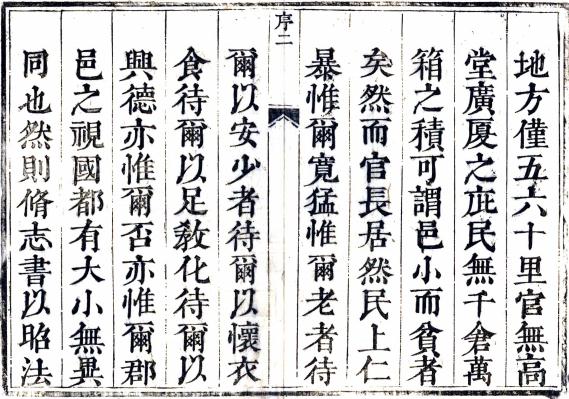 地方僅五六十里官無高
堂廣厦之庇民無千倉萬
箱之積可謂邑小而貧者
矣然而官長居然民上仁
暴惟爾寛猛惟爾老者待
序二
爾以安少者待爾以懷衣
食待爾以足敎化待爾以
興德亦惟爾否亦惟爾郡
邑之視國都有大小無異
同也然則脩志書以昭法